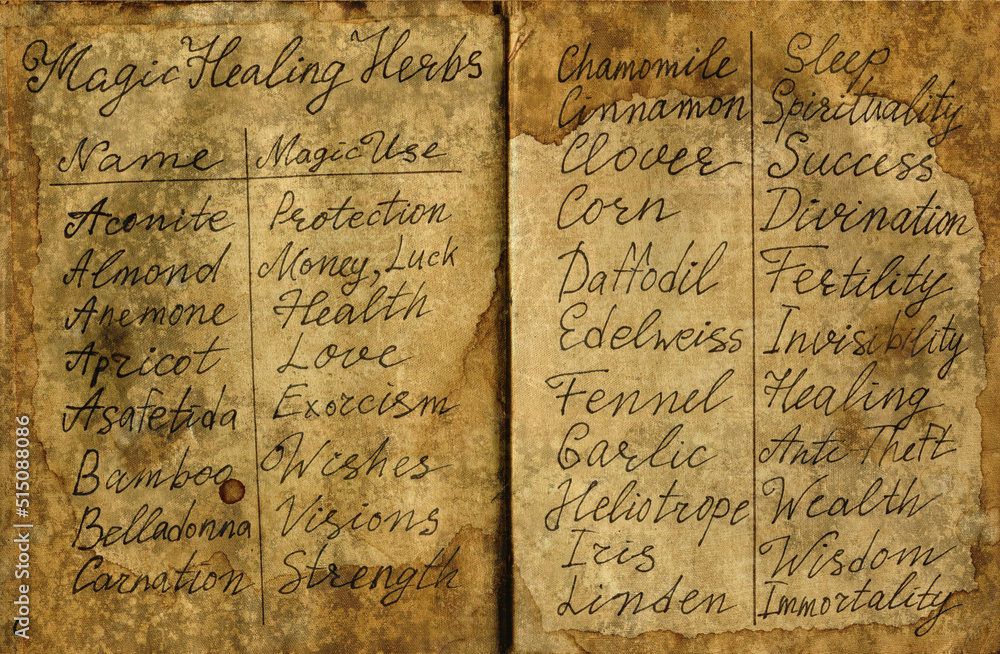 Magic Healing Herbs
Name Magic Use
Aconite Protection
Almond Money, Luck
Anemone Health
Apricot Love
Asafetida Exorcism
Bamboo Wishes
Belladonna Visions
Carnation Strength
Chamomile Sleep
Cinnamon Spirituality
Clover Success
Corn Divination
Daffodil Fertility
Edelweiss Invisibility
Fennel Healing
Garlic Anti-Theft
Heliotrope Wealth
Iris Wisdom
Linden Immortality
Adobe Stock | #515088086